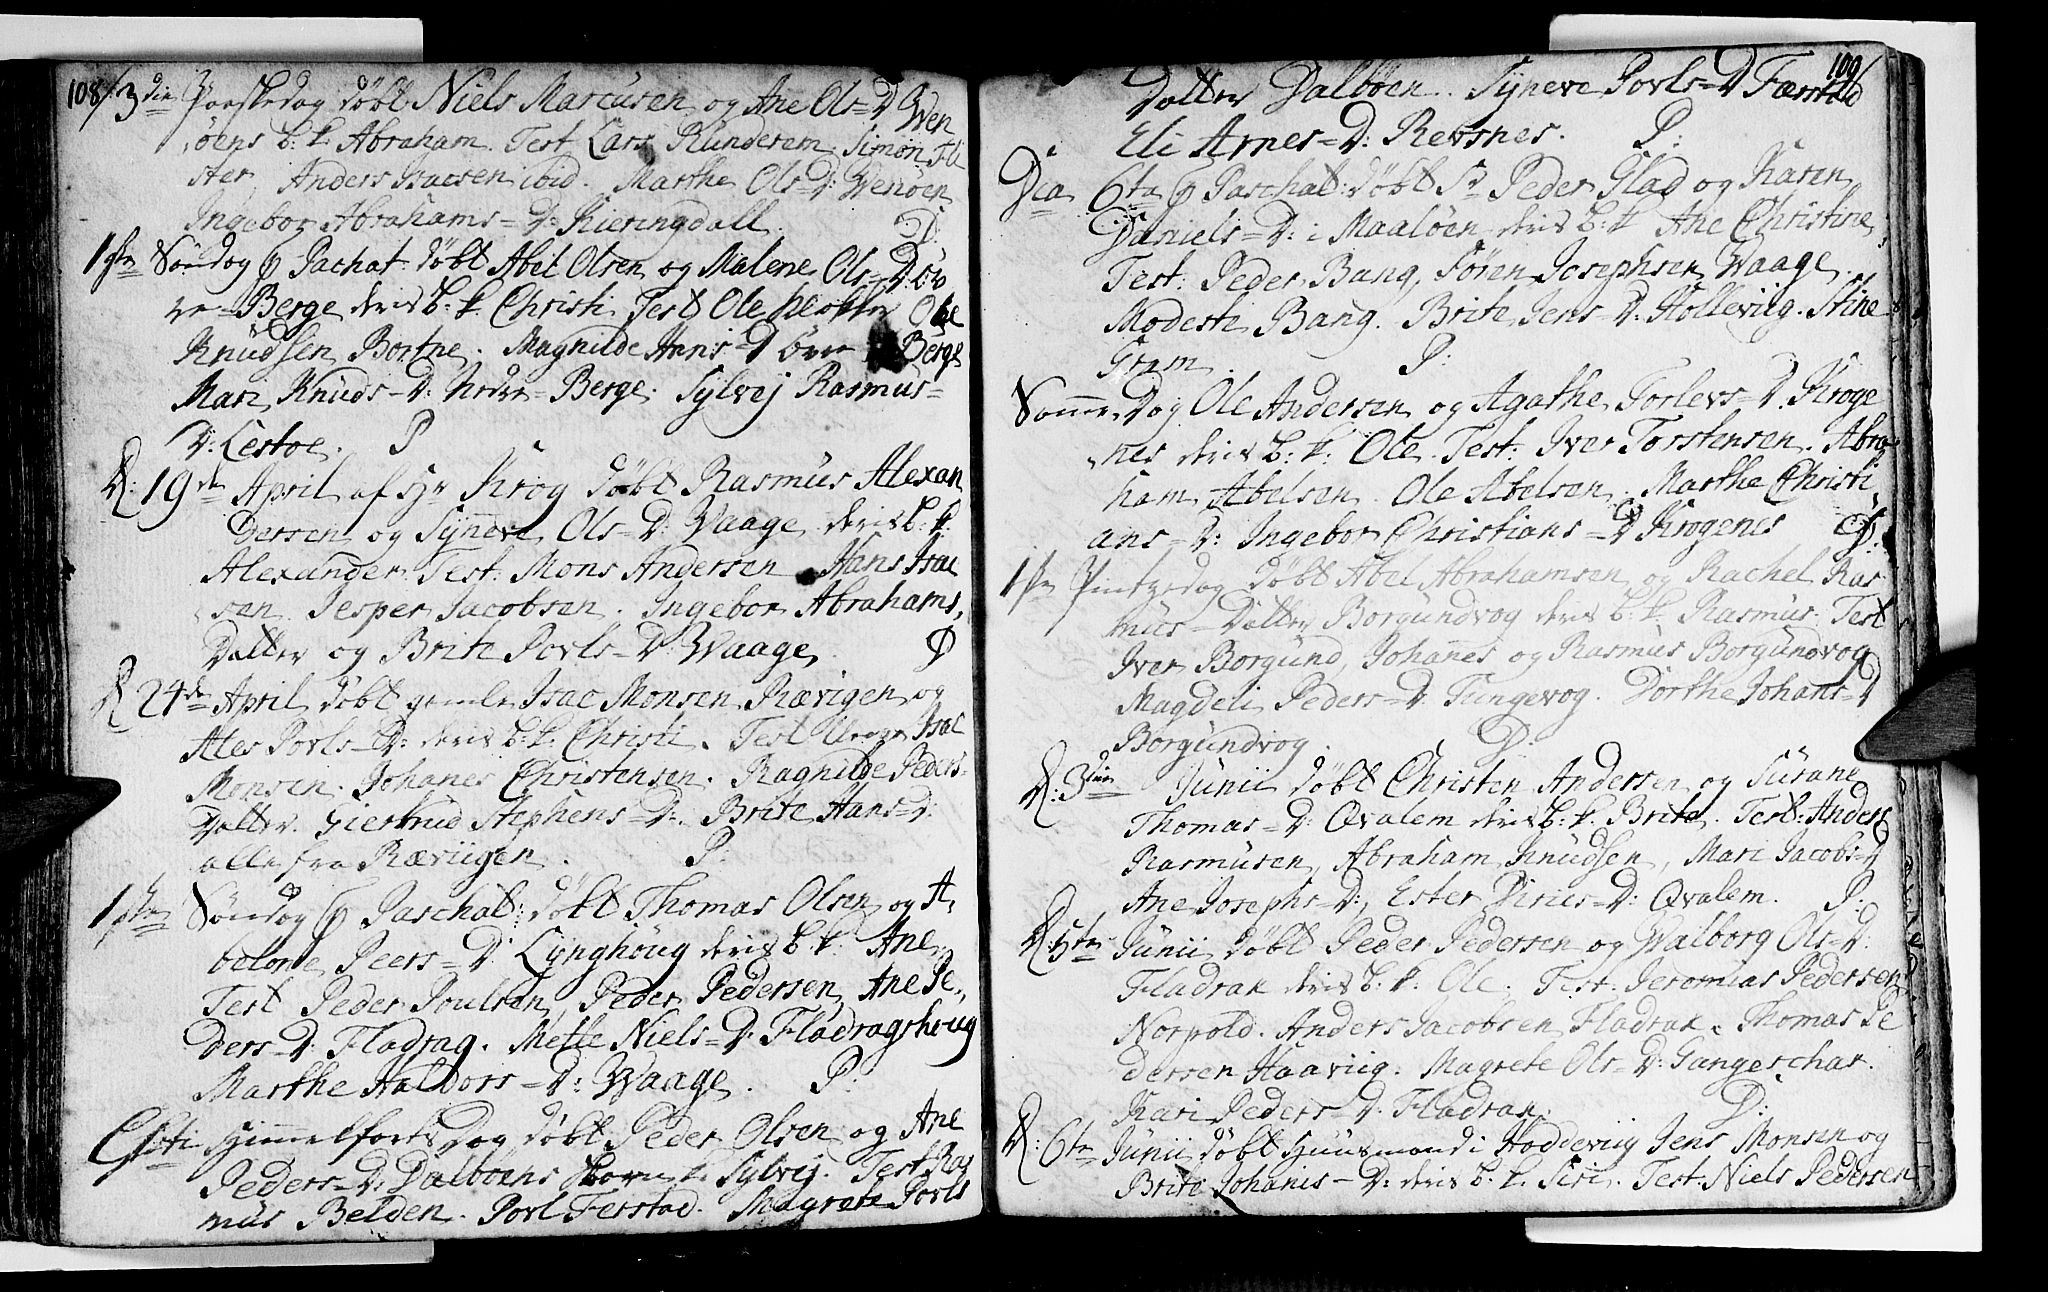 108/ 3die Paaskedag døbt Niels Marcusen og Ane Ols=D. Wen
øens b: k. Abraham. Test Lars Runderem. Simon Fli
ster, Anders Isacsen ibid. Marthe Ols=D: Wenøen
Ingebor Abrahams=D: Kieringdall. P:
1ste Søndag p Pachat: døbt Abel Olsen og Malene Ols=D: øv
re=Berge deris b: k. Christi Test Ole Ole
Knudsen Bortne. Magnilde Anns=D øvre Berge
Mari Knuds=D: nedre=Berge. Sylvej Rasmus=
D: Lestoe. P
D: 19de April af Hr Krog døbt Rasmus Alexan
dersen og Synneve Ols=D: Waage deris b: k.
Alexander. Test: Mons Andersen Hans Isac
sen. Jesper Jacobsen. Ingebor Abrahams,
Datter og Brite Povls=D: Waage. P
D 24de April døbt gamle Isac Monsen Rævigen og
Ales Povls=D: deris b: k: Christi. Test Unge Isac
Monsen. Johanes Christensen. Ragnilde Peders=
Datter. Giertrud Stephens=D: Brite Hans=D:
alle fra Ræviigen. P:
1ste Søndag p Paschat: døbt Thomas Olsen og A,
belone Peers=D: Lynghoug deris b. k: Ane
Test Peder Poulsen, Peder Pedersen, Ane Pe,
ders=D. Fladrag. Mette Niels=D: Fladragshoug
Marthe Haldors=D: Waage. P:
Christi Himmelfarts Dag døbt Peder Olsen og Ane
Peders=D: Dalbøens barn k. Sylvej. Test Ras
mus Belden. Povl Ferstad. Magrete Povls
109/
Datter Dalbøen. Syneve Povls=D Færstad
Eli Arnes=D: Revsnes. P:
Dca 6ta p Paschat: døbt Sr Peder Glad og Karen
Daniels=D: i Maaløen deris b: k Ane Christine
Test: Peder Bang, Søren Josephsen Waage.
Modesti Bang. Brite Jens=D: Holleviig. Stine
Gram. P:
Samme Dag Ole Andersen og Agathe Torlevs=D. Kroge
nes deris b: k: Ole. Test: Iver Torstensen. Abra
ham Abelsen. Ole Abelsen. Marthe Christi,
ans=D: Ingebor Christians=D Krogenes P:
1ste Pintzedag døbt Abel Abrahamsen og Rachel Ras
mus=Datter Borgundvog deris b. k. Rasmus. Test
Iver Borgund, Johanes og Rasmus Borgundvog
Magdeli Peders=D: Tungevog. Dorthe Johans=D
Borgundvog. P:
D: 3die Junii døbt Christen Andersen og Surane
Thomas=D: Qvalem deris b: k. Brite. Test: Anders
Rasmusen, Abraham Knudsen, Mari Jacobs=D
Ane Josephs=D:, Ester Diries=D: Qvalem. P:
D: 5te Junii døbt Peder Pedersen og Walborg Ols=D:
Fladrak deris b: k: Ole. Test: Jeromias Pedersen
Norpold. Anders Jacobsen Fladrak. Thomas Pe
dersen Haaviig. Magrete Ols=D: Gangerschar.
Kari Peders=D: Fladrak. P:
D: 6te Junii døbt Huusmand i Hoddeviig Jens Monsen og
Brite Johanis=D: deris b. k. Siri. Test: Niels Pedersen